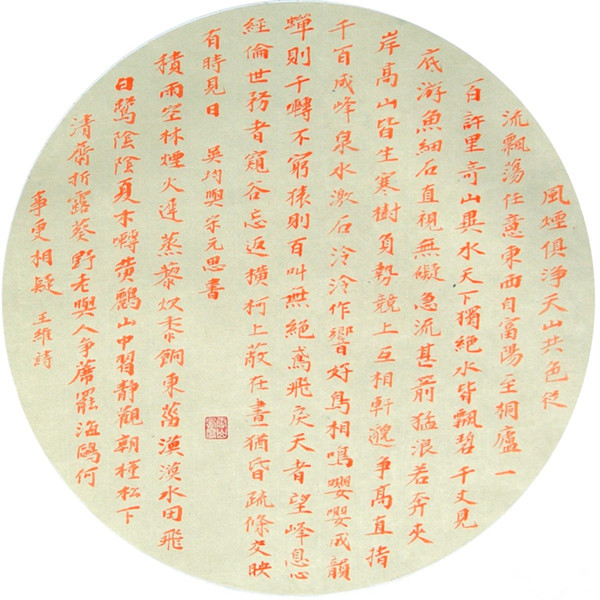 風煙俱淨天山共色從
流飄蕩任意東西自富陽至桐廬一
百許里奇山異水天下獨絕水皆飄碧千丈見
底游魚細石直視無礙急流甚箭猛浪若奔夾
岸高山皆生寒樹負勢競上互相軒邈爭高直指
千百成峰泉水激石泠泠作響好鳥相鳴嚶嚶成韻
蟬則千囀不窮猿則百叫無絕鳶飛戾天者望峰息心
經倫世務者窺谷忘返橫柯上蔽在晝猶昏疏條交映
有時見日 吳均與宋元思書
積雨空林煙火遲蒸藜炊黍餉東菑漠漠水田飛
白鷺陰陰夏木囀黃鸝山中習靜觀朝槿松下
清齋折露葵野老與人爭席罷海鷗何
事更相疑 王維詩